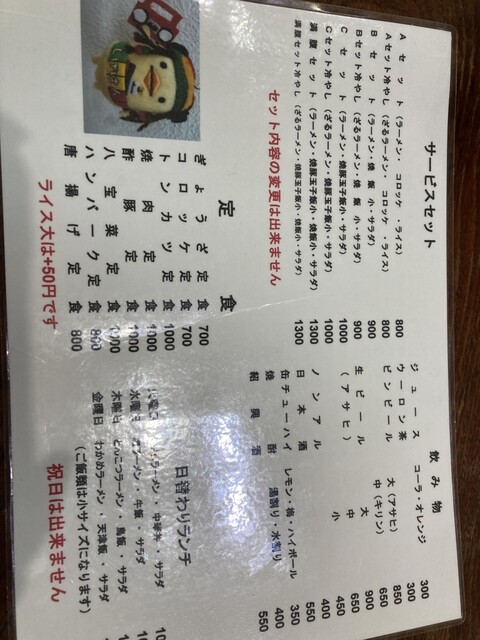 サービスセット
Aセット（ラーメン・コロッケ・ライス） 800
Aセット冷やし（ざるラーメン・コロッケ・ライス） 800
Bセット（ラーメン・焼飯小・サラダ） 900
Bセット冷やし（ざるラーメン・焼飯小・サラダ） 900
Cセット（ラーメン・焼豚玉子飯小・サラダ） 1000
Cセット冷やし（ざるラーメン・焼豚玉子飯小・サラダ） 1000
満腹セット（ラーメン・焼豚玉子飯小・焼飯小・サラダ） 1300
満腹セット冷やし（ざるラーメン・焼豚玉子飯小・焼飯小・サラダ） 1300
セット内容の変更は出来ません
定食
ぎょうざ定食 700
コロッケ定食 700
トンカツ定食 1000
焼肉定食 1000
酢豚定食 1000
八宝菜定食 1000
ハンバーク定食 800
唐揚げ定食 800
ライス大は+50円です
飲み物
ジュース コーラ・オレンジ 300
ウーロン茶 300
ビンビール 大（アサヒ） 850
中（キリン） 650
生ビール 大 900
（アサヒ） 中 650
小 450
ノンアル 400
日本酒 550
缶チューハイ レモン・梅・ハイボール 350
焼酎 湯割り・水割り 400
紹興酒 550
日替わりランチ
ラーメン・中華丼・サラダ
水曜日 ラーメン・牛飯・サラダ
木曜日 とんこつラーメン・鳥飯・サラダ
金曜日 わかめラーメン・天津飯・サラダ
（ご飯類は小サイズになります）
祝日は出来ません